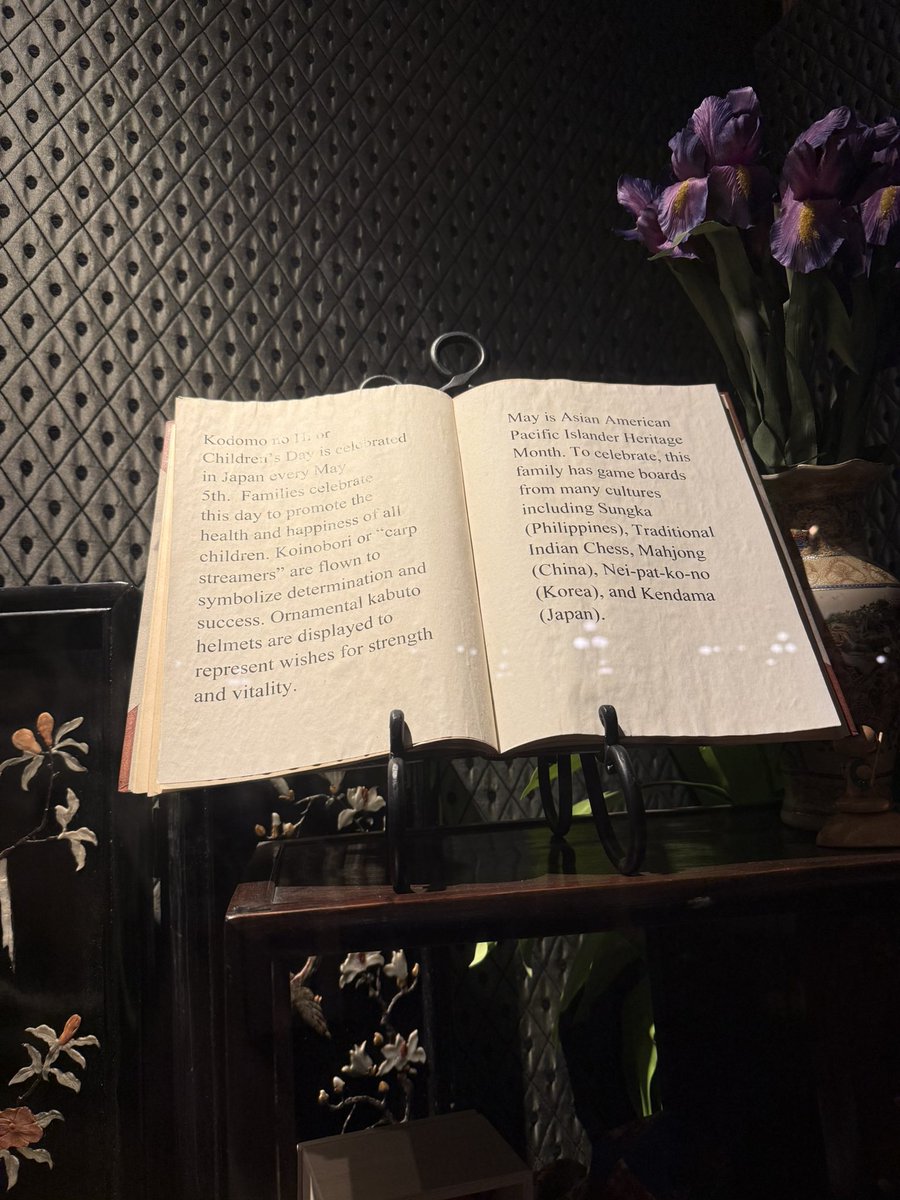 Kodomo no Hi or
Children's Day is celebrated
in Japan every May
5th. Families celebrate
this day to promote the
health and happiness of all
children. Koinobori or “carp
streamers” are flown to
symbolize determination and
success. Ornamental kabuto
helmets are displayed to
represent wishes for strength
and vitality.
May is Asian American
Pacific Islander Heritage
Month. To celebrate, this
family has game boards
from many cultures
including Sungka
(Philippines), Traditional
Indian Chess, Mahjong
(China), Nei-pat-ko-no
(Korea), and Kendama
(Japan).